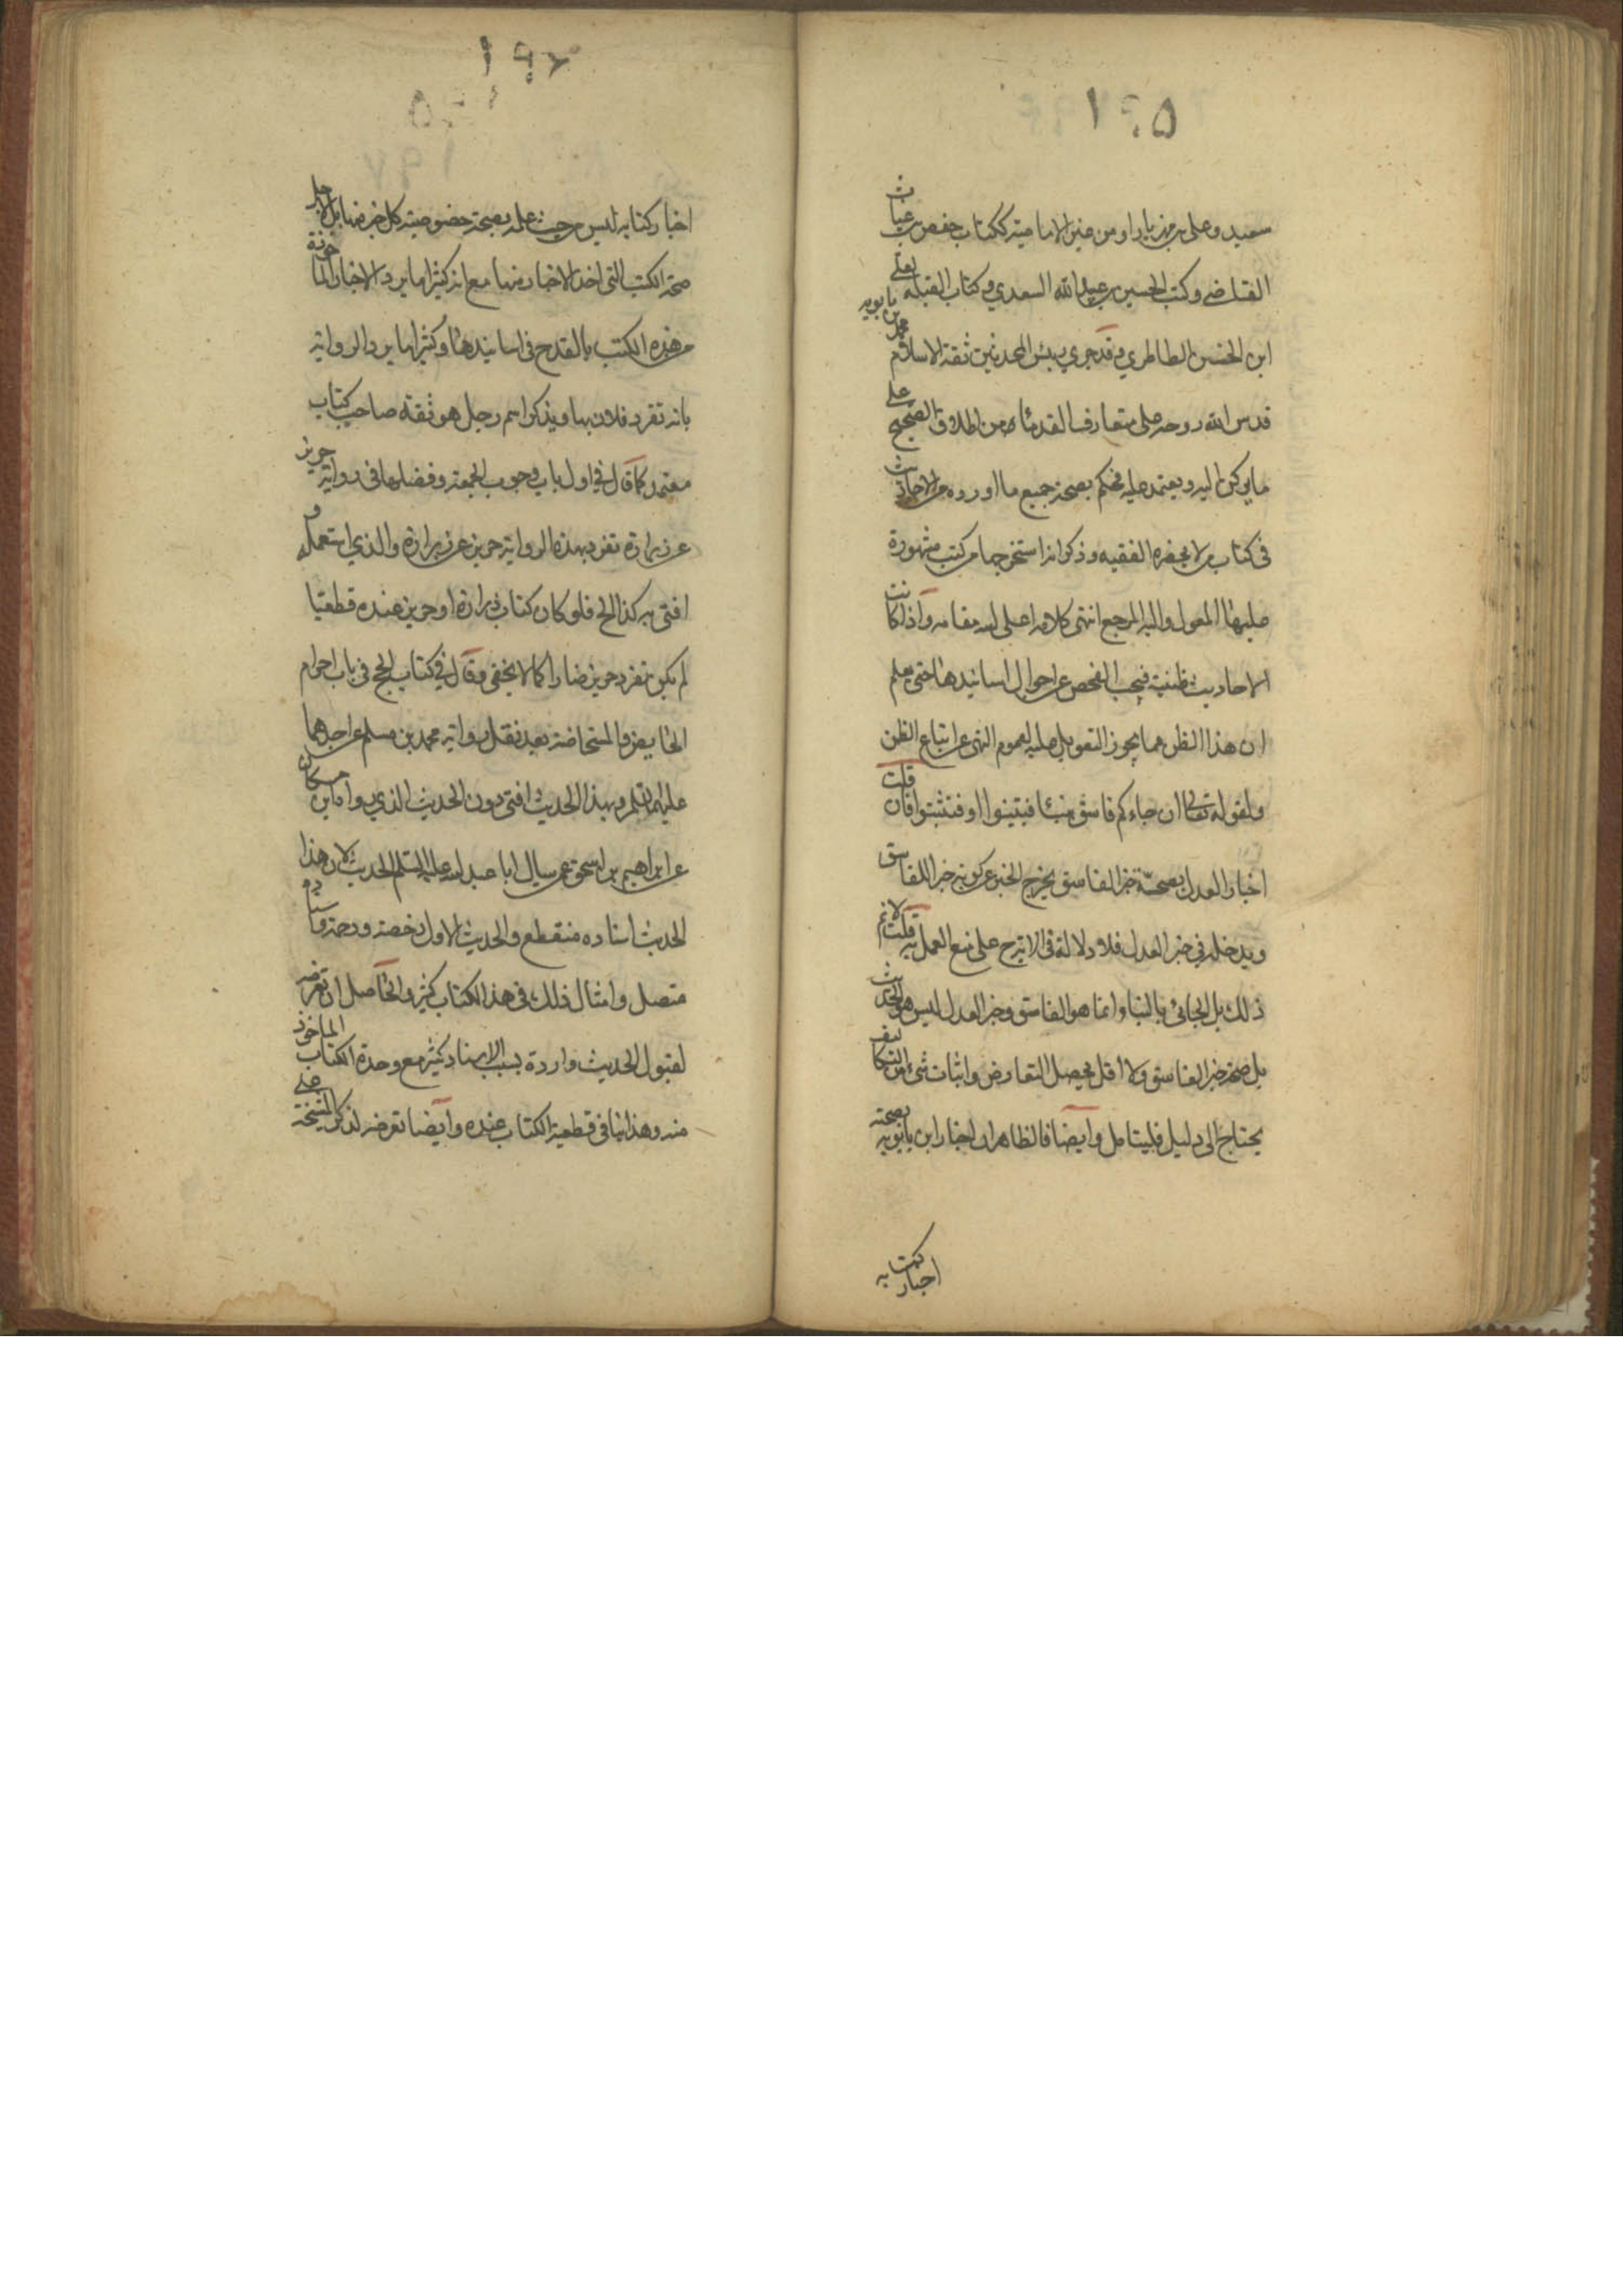 ١٩٥
سعيد وعلى بن مهزيار او من غير الامامية ككتاب حفص بن غياث
القاضي وكتب الحسين بن عبيد الله السعدي وكتاب القبلة لعلي
ابن الحسن الطاطري وقد جرى رئيس المحدثين ثقة الاسلام محمد بن بابويه
قدس الله روحه على متعارف القدماء من اطلاق الصحيح على
ما يركن اليه ويعتمد عليه فحكم بصحة جميع ما اورده من الاحاديث
في كتاب من لا يحضره الفقيه وذكر انه استخرجها من كتب مشهورة
عليها المعول واليها المرجع انتهى كلامه اعلى الله مقامه واذا كانت
الاحاديث ظنية فيجب الفحص عن احوال اسانيدها حتى يعلم
ان هذا الظن مما يجوز التعويل عليه لعموم النهي عن اتباع الظن
ولقوله تعالى ان جاءكم فاسق بنبأ فتبينوا او فتثبتوا فان قلت
اخبار العدل بصحة خبر الفاسق يخرج الخبر عن كونه خبر الفاسق
ويدخله في خبر العدل فلا دلالة في الاية ح على منع العمل به قلت لا نم
ذلك بل الجائي بالنبأ انما هو الفاسق وخبر العدل ليس هو الحديث
بل صحة خبر الفاسق ولا اقل يحصل التعارض واثبات شيء من التكاليف
يحتاج الى دليل فليتامل وايضا فالظاهر ان اخبار ابن بابويه بصحة
اخبار كتابه
١٩٦
اخبار كتابه ليس من حيث علمه بصحة خصوصية كل خبر منها بل لاجل
صحة الكتب التي اخذ الاخبار منها مع انه كثيرا ما يرد الاخبار الماخوذة
من هذه الكتب بالقدح في اسانيدها وكثيرا ما يرد الرواية
بانه تفرد فلان بها ويذكر اسم رجل هو ثقة صاحب كتاب
معتمد كما قال في اول باب وجوب الجمعة وفضلها في رواية حريز
عن زرارة تفرد بهذه الرواية حريز عن زرارة والذي استعمله و
افتى به كذا الخ فلو كان كتاب زرارة او حريز عنده قطعيا
لم يكن تفرد حريز ضارا كما لا يخفى وقال في كتاب الحج في باب احرام
الحايض والمستحاضة بعد نقل رواية محمد بن مسلم عن احدهما
عليهما السلم وبهذا الحديث افتى دون الحديث الذي رواه ابن مسكان
عن ابراهيم بن اسحق عمن سال ابا عبد الله عليه السلم الحديث لان هذا
الحديث اسناده منقطع والحديث الاول رخصة ورحمة واسناده
متصل وامثال ذلك في هذا الكتاب كثير والحاصل ان تعرضه
لقبول الحديث وارده بسبب الاسناد كثير مع وحدة الكتاب الماخوذ
منه وهذا ينافي قطعية الكتاب عنده وايضا تعرضه لذكر المشيخة على